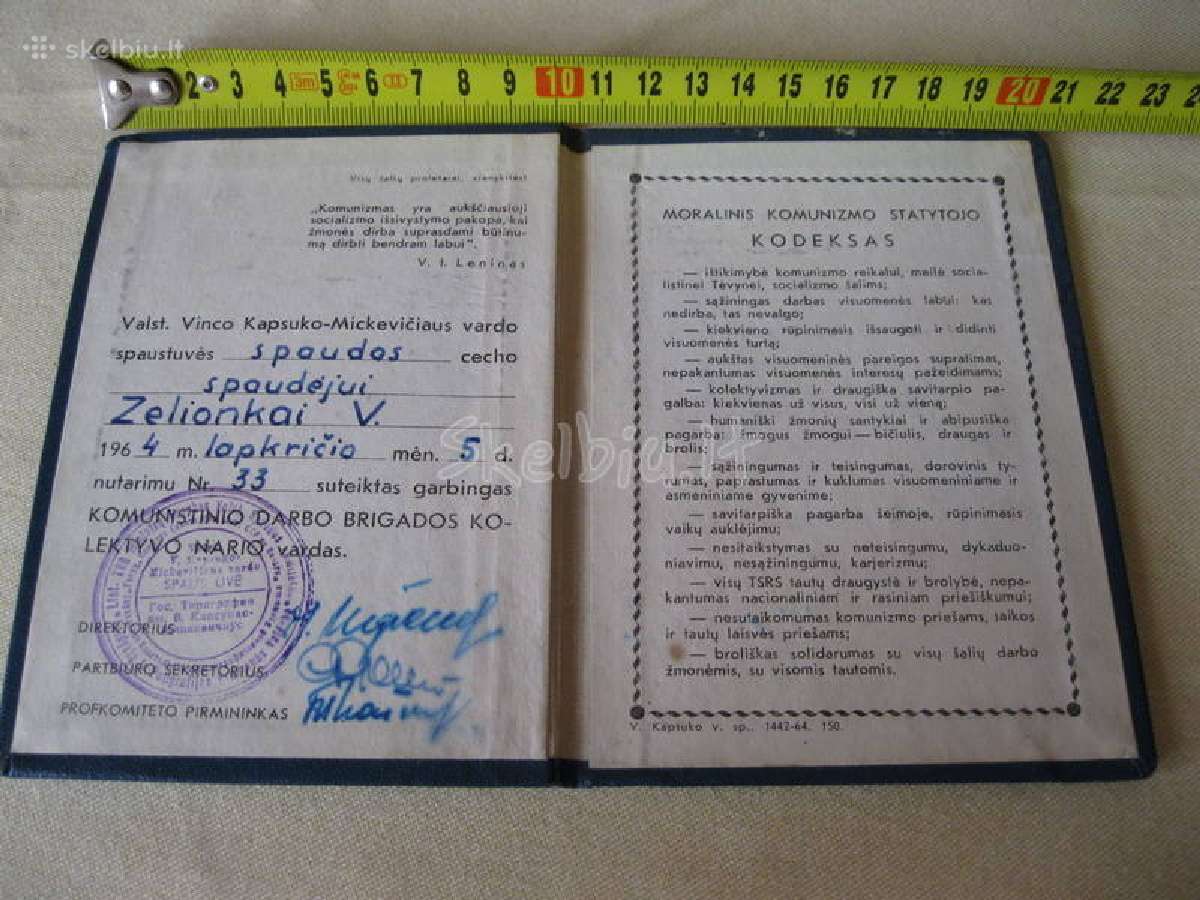 skelbiu.lt
2 3 4 5 6 7 8 9 10 11 12 13 14 15 16 17 18 19 20 21 22 23
Visų šalių proletarai, vienykitės!
„Komunizmas yra aukščiausioji
socializmo išsivystymo pakopa, kai
žmonės dirba suprasdami būtinu-
mą dirbti bendram labui“.
V. I. Leninas
Valst. Vinco Kapsuko-Mickevičiaus vardo
spaustuvės spaudos cecho
spaudėjui
Zelionkai V.
1964 m. lapkričio mėn. 5 d.
nutarimu Nr. 33 suteiktas garbingas
KOMUNISTINIO DARBO BRIGADOS KO-
LEKTYVO NARIO vardas.
Mickevičiaus vardo
SPAUSTUVĖ
Гос. Типография
DIREKTORIUS
PARTBIURO SEKRETORIUS
PROFKOMITETO PIRMININKAS
MORALINIS KOMUNIZMO STATYTOJO
KODEKSAS
— ištikimybė komunizmo reikalui, meilė socia-
listinei Tėvynei, socializmo šalims;
— sąžiningas darbas visuomenės labui: kas
nedirba, tas nevalgo;
— kiekvieno rūpinimasis išsaugoti ir didinti
visuomenės turtą;
— aukštas visuomeninės pareigos supratimas,
nepakantumas visuomenės interesų pažeidimams;
— kolektyvizmas ir draugiška savitarpio pa-
galba: kiekvienas už visus, visi už vieną;
— humaniški žmonių santykiai ir abipusiška
pagarba: žmogus žmogui — bičiulis, draugas ir
brolis;
— sąžiningumas ir teisingumas, dorovinis ty-
rumas, paprastumas ir kuklumas visuomeniniame ir
asmeniniame gyvenime;
— savitarpiška pagarba šeimoje, rūpinimasis
vaikų auklėjimu;
— nesitaikstymas su neteisingumu, dykaduo-
niavimu, nesąžiningumu, karjerizmu;
— visų TSRS tautų draugystė ir brolybė, nepa-
kantumas nacionaliniam ir rasiniam priešiškumui;
— nesutaikomumas komunizmo priešams, taikos
ir tautų laisvės priešams;
— broliškas solidarumas su visų šalių darbo
žmonėmis, su visomis tautomis.
V. Kapsuko v. sp., 1442-64. 150.
Skelbiu.lt